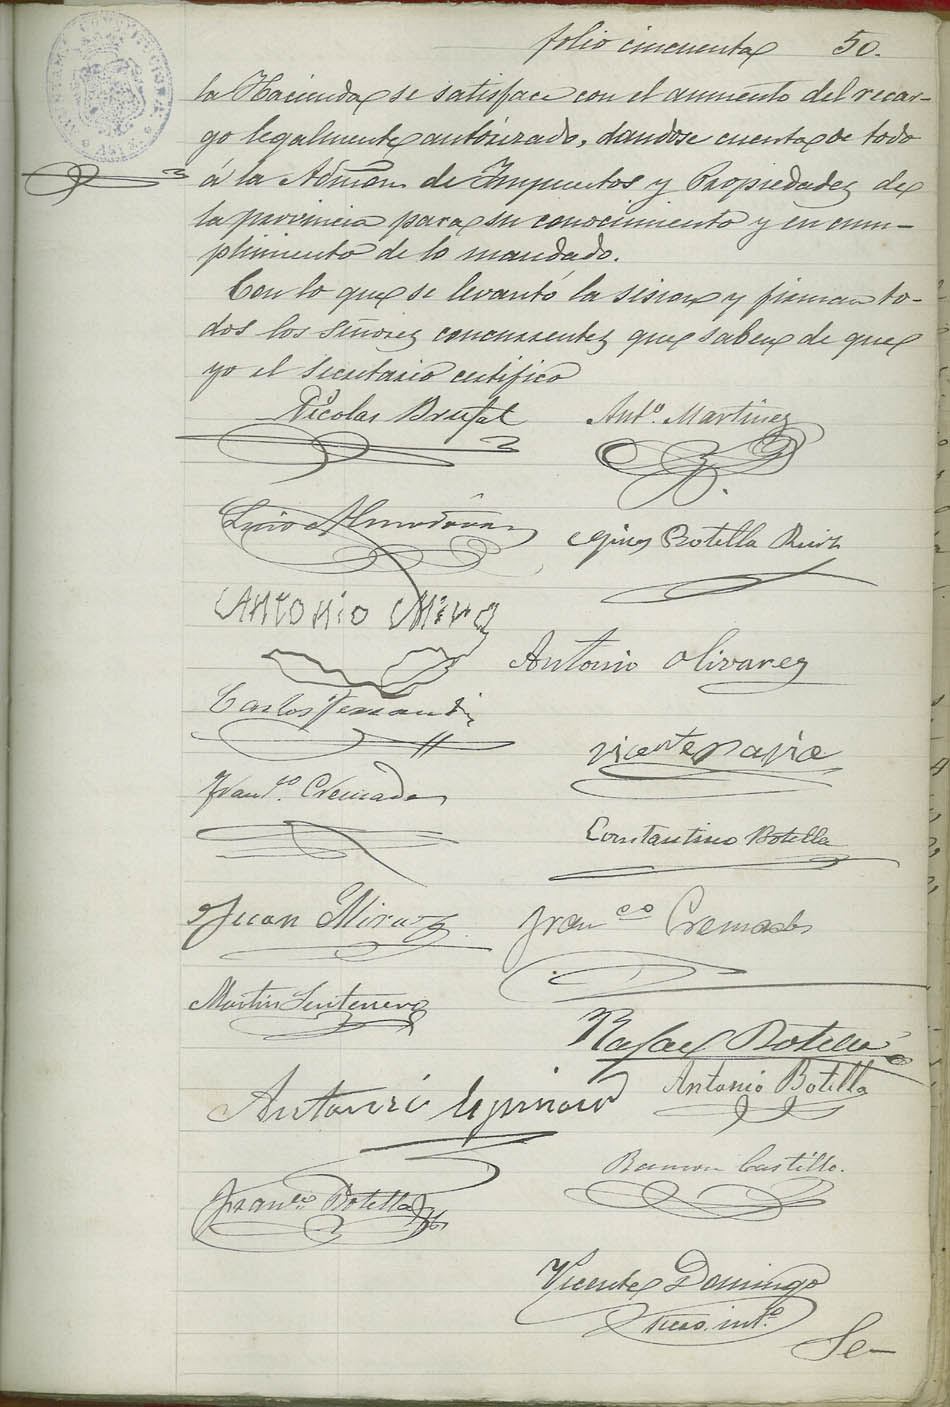 folio cincuenta 50.
la Hacienda se satisface con el aumento del recar-
go legalmente autorizado, dandose cuenta de todo
á la Admon de Impuestos y Propiedades de
la provincia para su conocimiento y en cum-
plimiento de lo mandado.
Con lo que se levantó la sision y firman to-
dos los señores concurrentes que saben de que
yo el secretario certifico
Nicolas Brufal Antº. Martinez
Lucio Almodóvar
Gines Botella Ruiz
Antonio Mira
Antonio Olivares
Carlos
Vicente
Franco. Cremades
Constantino Botella
Juan Mira
Franco Cremades
Martin
Rafael Botella
Antonio Botella
Antonio
Ramon Castillo.
Franco. Botella
Vicente Domingo
Srio. intº.
Se-